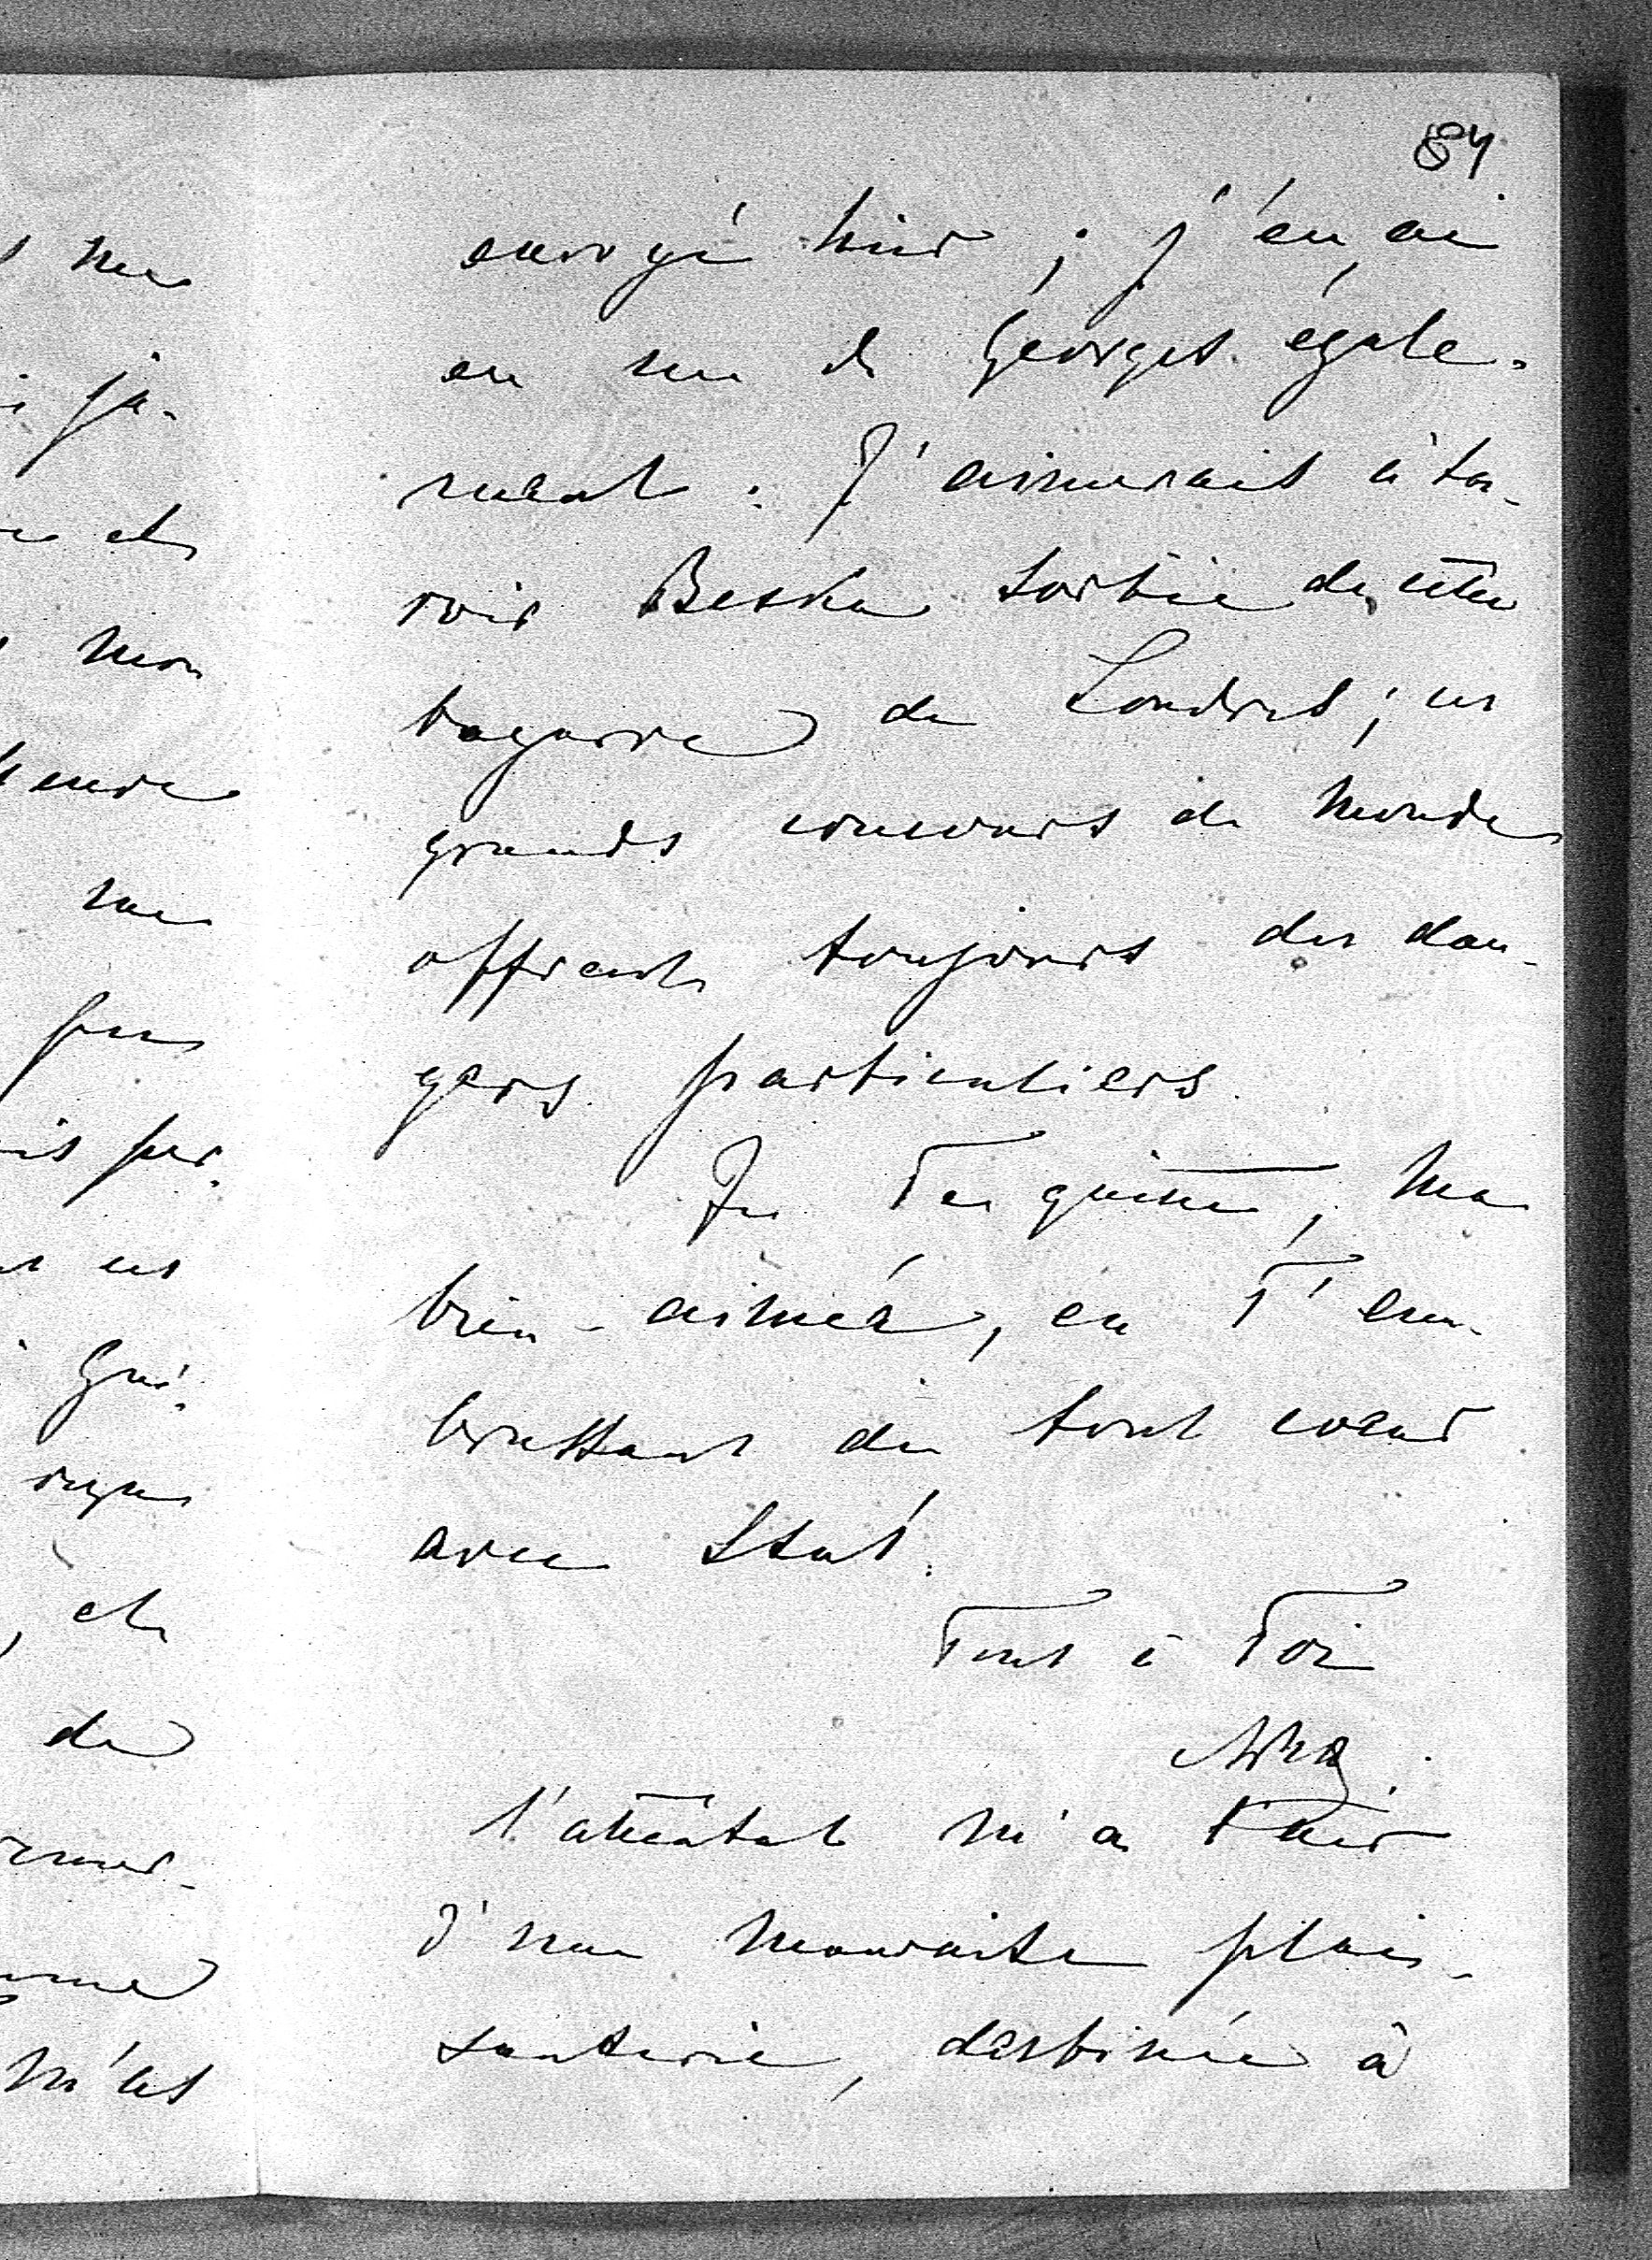 84
envoyé hier ; j'en ai
eu une de Georges égale-
ment. J'aimerais à sa-
voir Beska sortie de cette
bagarre de Londres ; ces
grands concours de monde
offrent toujours des dan-
gers particuliers.
Je Te quitte, ma
bien-aimée, en T'em-
brassant de tout coeur
avec Stat.
Tout à Toi
l'attentat m'a l'air
d'une mauvaise plai-
santerie, destinée à
me
ja-
et
mon
me
peu
per-
ces
Gué-
et
de
m'as